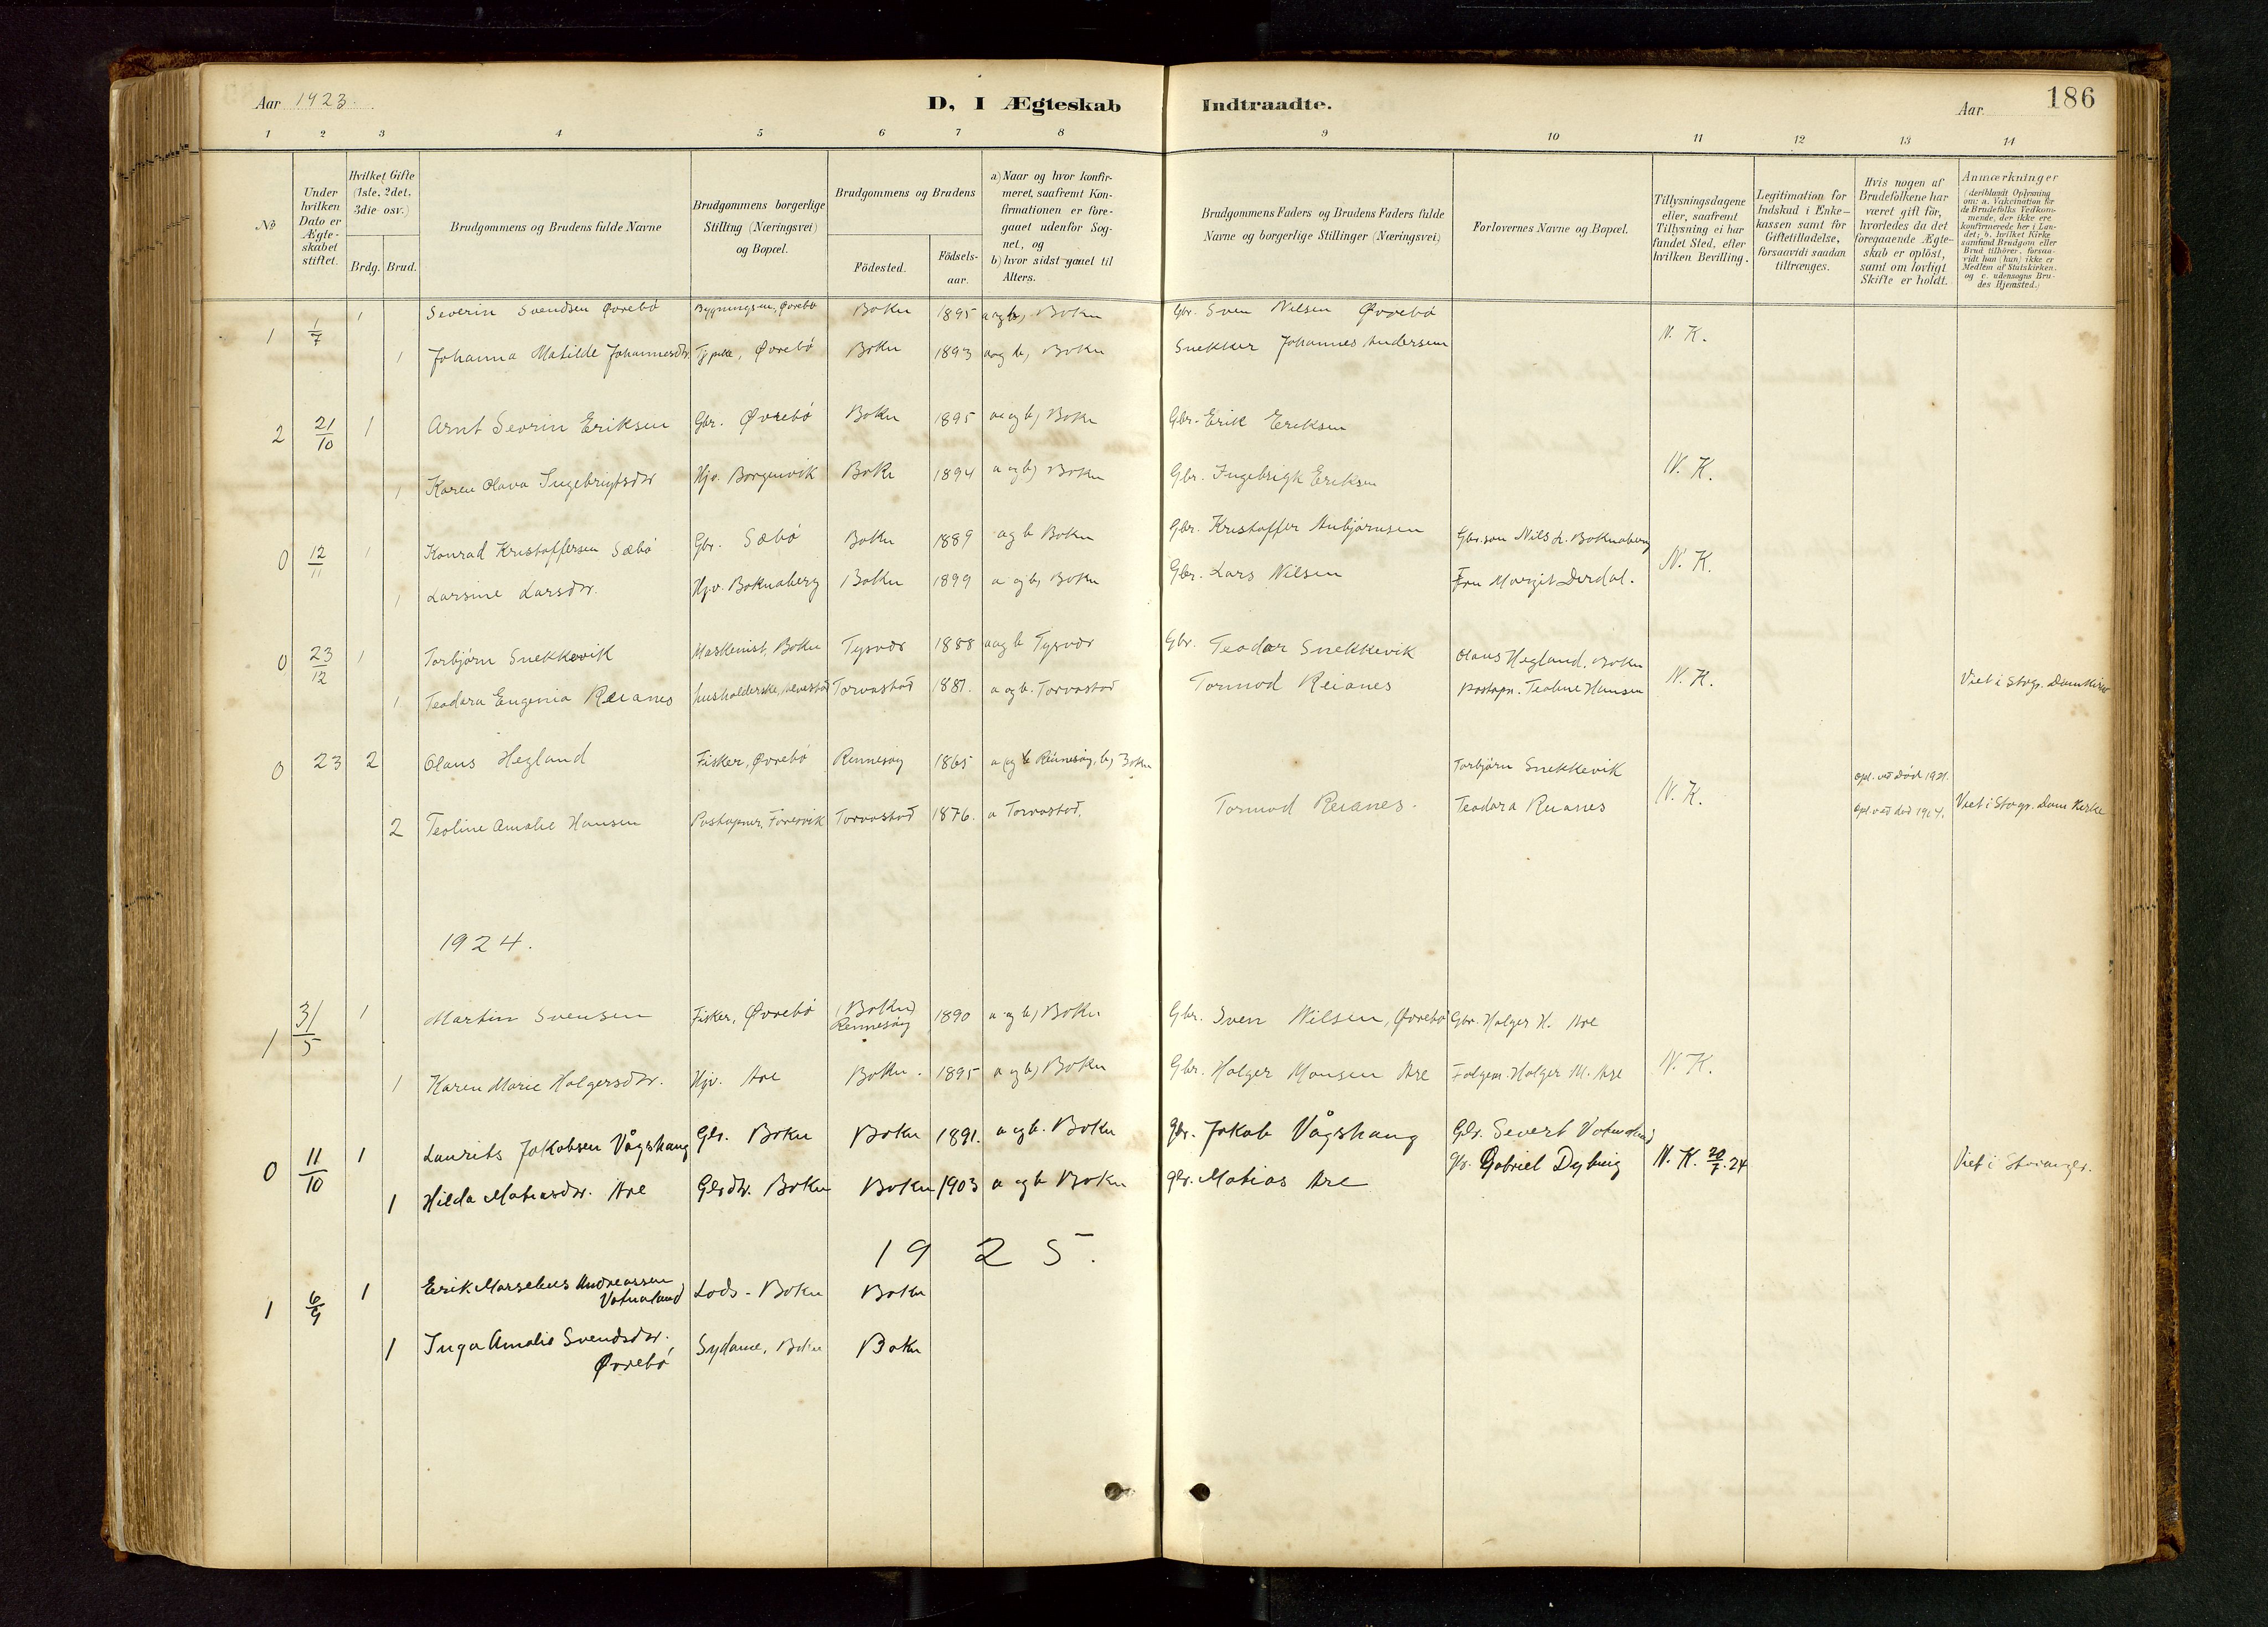 Aar 1923.
D, I Ægteskab Indtraadte.
Aar
186
1 2 3 4 5 6 7 8 9 10 11 12 13 14
No
Under hvilken Dato er Ægteskabet stiftet.
Hvilket Gifte (1ste, 2det, 3die osv.)
Brdg. Brud.
Brudgommens og Brudens fulde Navne
Brudgommens borgerlige Stilling (Næringsvei) og Bopæl.
Brudgommens og Brudens
Födested.
Födselsaar.
a) Naar og hvor konfirmeret, saafremt Konfirmationen er foregaaet udenfor Sognet, og
b) hvor sidst gaaet til Alters.
Brudgommens Faders og Brudens Faders fulde Navne og borgerlige Stillinger (Næringsvei)
Forlovernes Navne og Bopæl.
Tillysningsdagene eller, saafremt Tillysning ei har fundet Sted, efter hvilken Bevilling.
Legitimation for Indskud i Enkekassen samt for Giftetilladelse, forsaavidt saadan tiltrænges.
Hvis nogen af Brudefolkene har været gift før, hvorledes da det foregaaende Ægteskab er opløst, samt om lovligt Skifte er holdt.
Anmærkninger
(deriblandt Oplysning om: a. Vakcination for de Brudefolks Vedkommende, der ikke ere konfirmerede her i Landet; b. hvilket Kirkesamfund Brudgom eller Brud tilhörer, forsaavidt han (hun) ikke er Medlem af Statskirken, og c. udensogns Brudes Hjemsted.)
1 1/7 1 Severin Svendsen Øvrebö Bygningsm., Øvrebö Bokn 1895 a og b) Bokn Gbr. Sven Nilsen Øvrebö N. K.
1 Johanna Matilde Johannesdtr. Øvrebö Bokn 1893 a og b) Bokn Snekker Johannes Andersen
2 21/10 1 Arnt Sevrin Eriksen Gbr. Øvrebö Bokn 1895 a og b) Bokn Gbr. Erik Eriksen
1 Karen Olava Ingebrigtsdtr Hjv. Borgenvik Bokn 1894 a og b) Bokn Gbr. Ingebrigt Eriksen N. K.
0 12/11 1 Konrad Kristoffersen Sæbö Gbr. Sæbö Bokn 1889 a og b Bokn Gbr. Kristoffer Anbjörnsen Gbr. sön Nils L. Boknaberg N. K.
1 Larsine Larsdtr. Hjv. Boknaberg Bokn 1899 a og b) Bokn Gbr. Lars Nilsen Fru Margit Dirdal.
0 23/12 1 Torbjörn Snekkevik Maskinist, Bokn Tysvær 1888 a og b Tysvær Gbr. Teodor Snekkevik Olaus Hegland, Bokn N. K.
1 Teodora Eugenia Reianes husholderske, Torvastad 1881. a og b. Torvastad Tormod Reianes Postopn. Teoline Hansen Viet i Stvgr. Domkirke
0 23 2 Olaus Hegland Fisker, Øvrebö Rennesöy 1865 a og Rennesöy, b) Bokn Torbjörn Snekkevik N. K. opl. ved död 1921.
2 Teoline Amalie Hansen Postopner, Torvastad 1876. a Torvastad. Tormod Reianes. Teodora Reianes opl. ved död 1914. Viet i Stvgr. Dom Kirke
1924.
1 31/5 1 Martin Svensen Fisker, Øvrebö (Bokn) Rennesöy 1890 a og b) Bokn Gbr. Sven Nilsen, Øvrebö Gbr. Holger H. Are
1 Karen Marie Holgersdtr. Hjv. Are Bokn. 1895 a og b) Bokn Gbr. Holger Monsen Are Holger M. Are N. K.
0 11/10 1 Laurits Jakobsen Vågshaug Gbr. Bokn Bokn 1891. a og b. Bokn gbr. Jakob Vågshaug Gbr. Severt Vatnaland
1 Hilda Matiasdtr. Are Gbrdtr. Bokn Bokn 1903 a og b Bokn gbr. Matias Are gbr. Gabriel Dybing N. K. 20/7. 24 Viet i Stavanger.
1925.
1 6/9 1 Erik Marselius Andreassen Vatnaland Lods - Bokn Bokn
1 Inga Amalie Svendsdtr. Øvrebö Sydame, Bokn Bokn